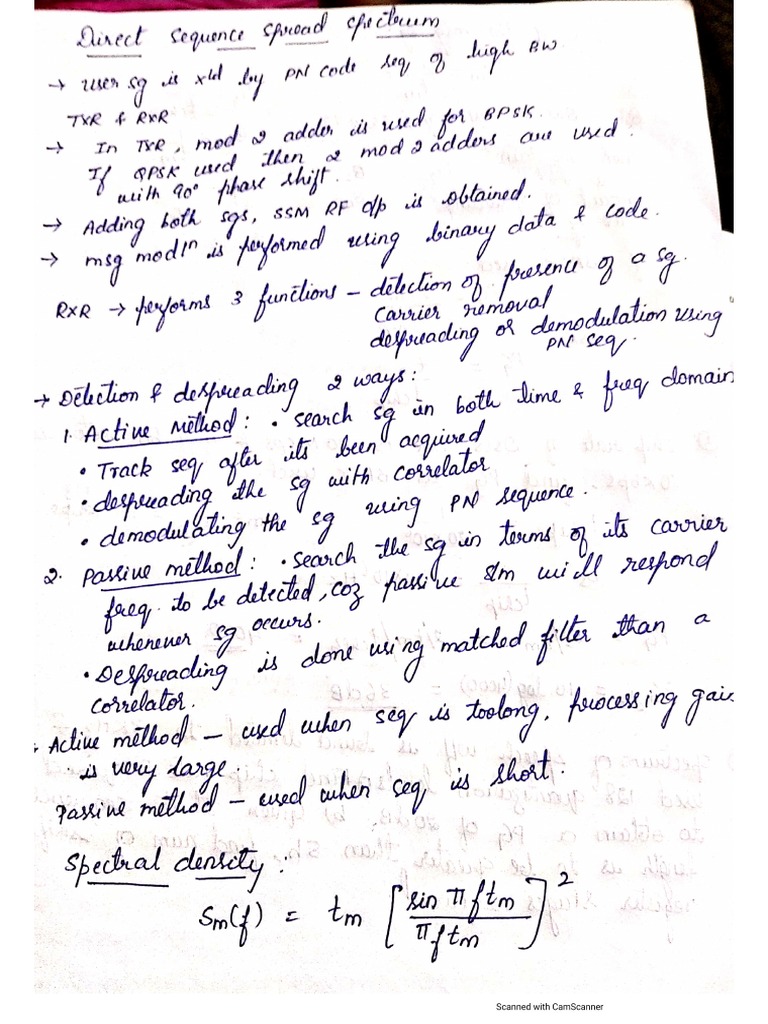 Direct sequence spread spectrum
→ user sg is x^ld by PN code seq of high BW.
TXR & RXR
→ In TXR, mod 2 adder is used for BPSK.
If QPSK used then 2 mod 2 adders are used.
with 90° phase shift.
→ Adding both sgs, SSM RF o/p is obtained.
→ msg mod1^n is performed using binary data & code.
RXR → performs 3 functions – detection of presence of a sg.
carrier removal
despreading or demodulation using
PN seq.
→ Detection & despreading 2 ways:
1. Active Method: • search sg in both time & freq domain
• Track seq after its been acquired
• despreading the sg with correlator
• demodulating the sg using PN sequence.
2. Passive method: • search the sg in terms of its carrier
freq. to be detected, coz passive s/m will respond
whenever sg occurs.
• Despreading is done using matched filter than a
correlator.
Active method – used when seq is too long, processing gain
is very large.
Passive method – used when seq is short.
Spectral density:
Sm(f) = tm [sin π f tm / π f tm]²
Scanned with CamScanner